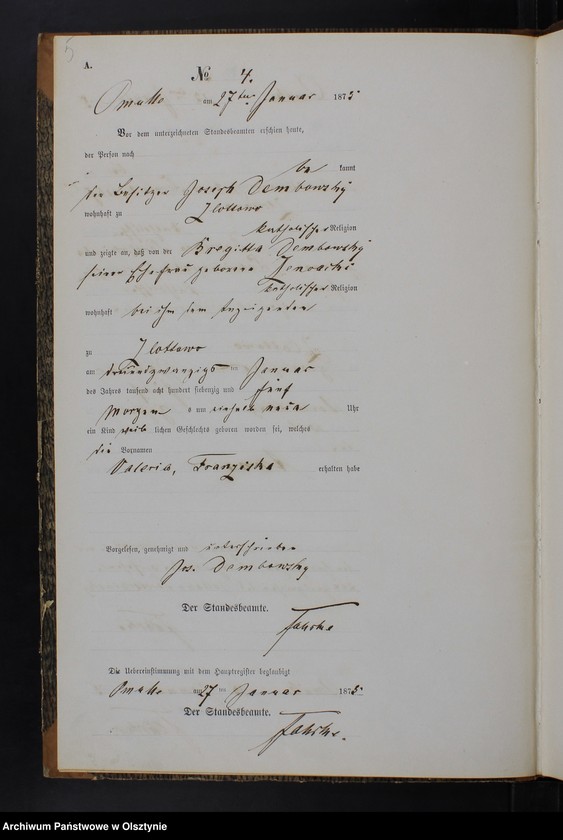 5
A.
No 4.
Omulle am 27ten Januar 1875
Vor dem unterzeichneten Standesbeamten erschien heute,
der Person nach
be kannt
der Besitzer Joseph Dembowsky
wohnhaft zu Zlottowo
katholischer Religion
und zeigte an, daß von der Bregitta Dembowsky
seiner Ehefrau geborene
katholischer Religion
wohnhaft bei ihm dem Anzeigenden
zu Zlottowo
am ten Januar
des Jahres tausend acht hundert siebenzig und fünf
Morgens um neun Uhr
ein Kind weib lichen Geschlechts geboren worden sei, welches
die Vornamen
Valeria, Franziska erhalten habe
Vorgelesen, genehmigt und unterschrieben
Jos. Dembowsky
Der Standesbeamte.
Die Uebereinstimmung mit dem Hauptregister beglaubigt
Omulle am 27 ten Januar 1875
Der Standesbeamte.
Archiwum Państwowe w Olsztynie